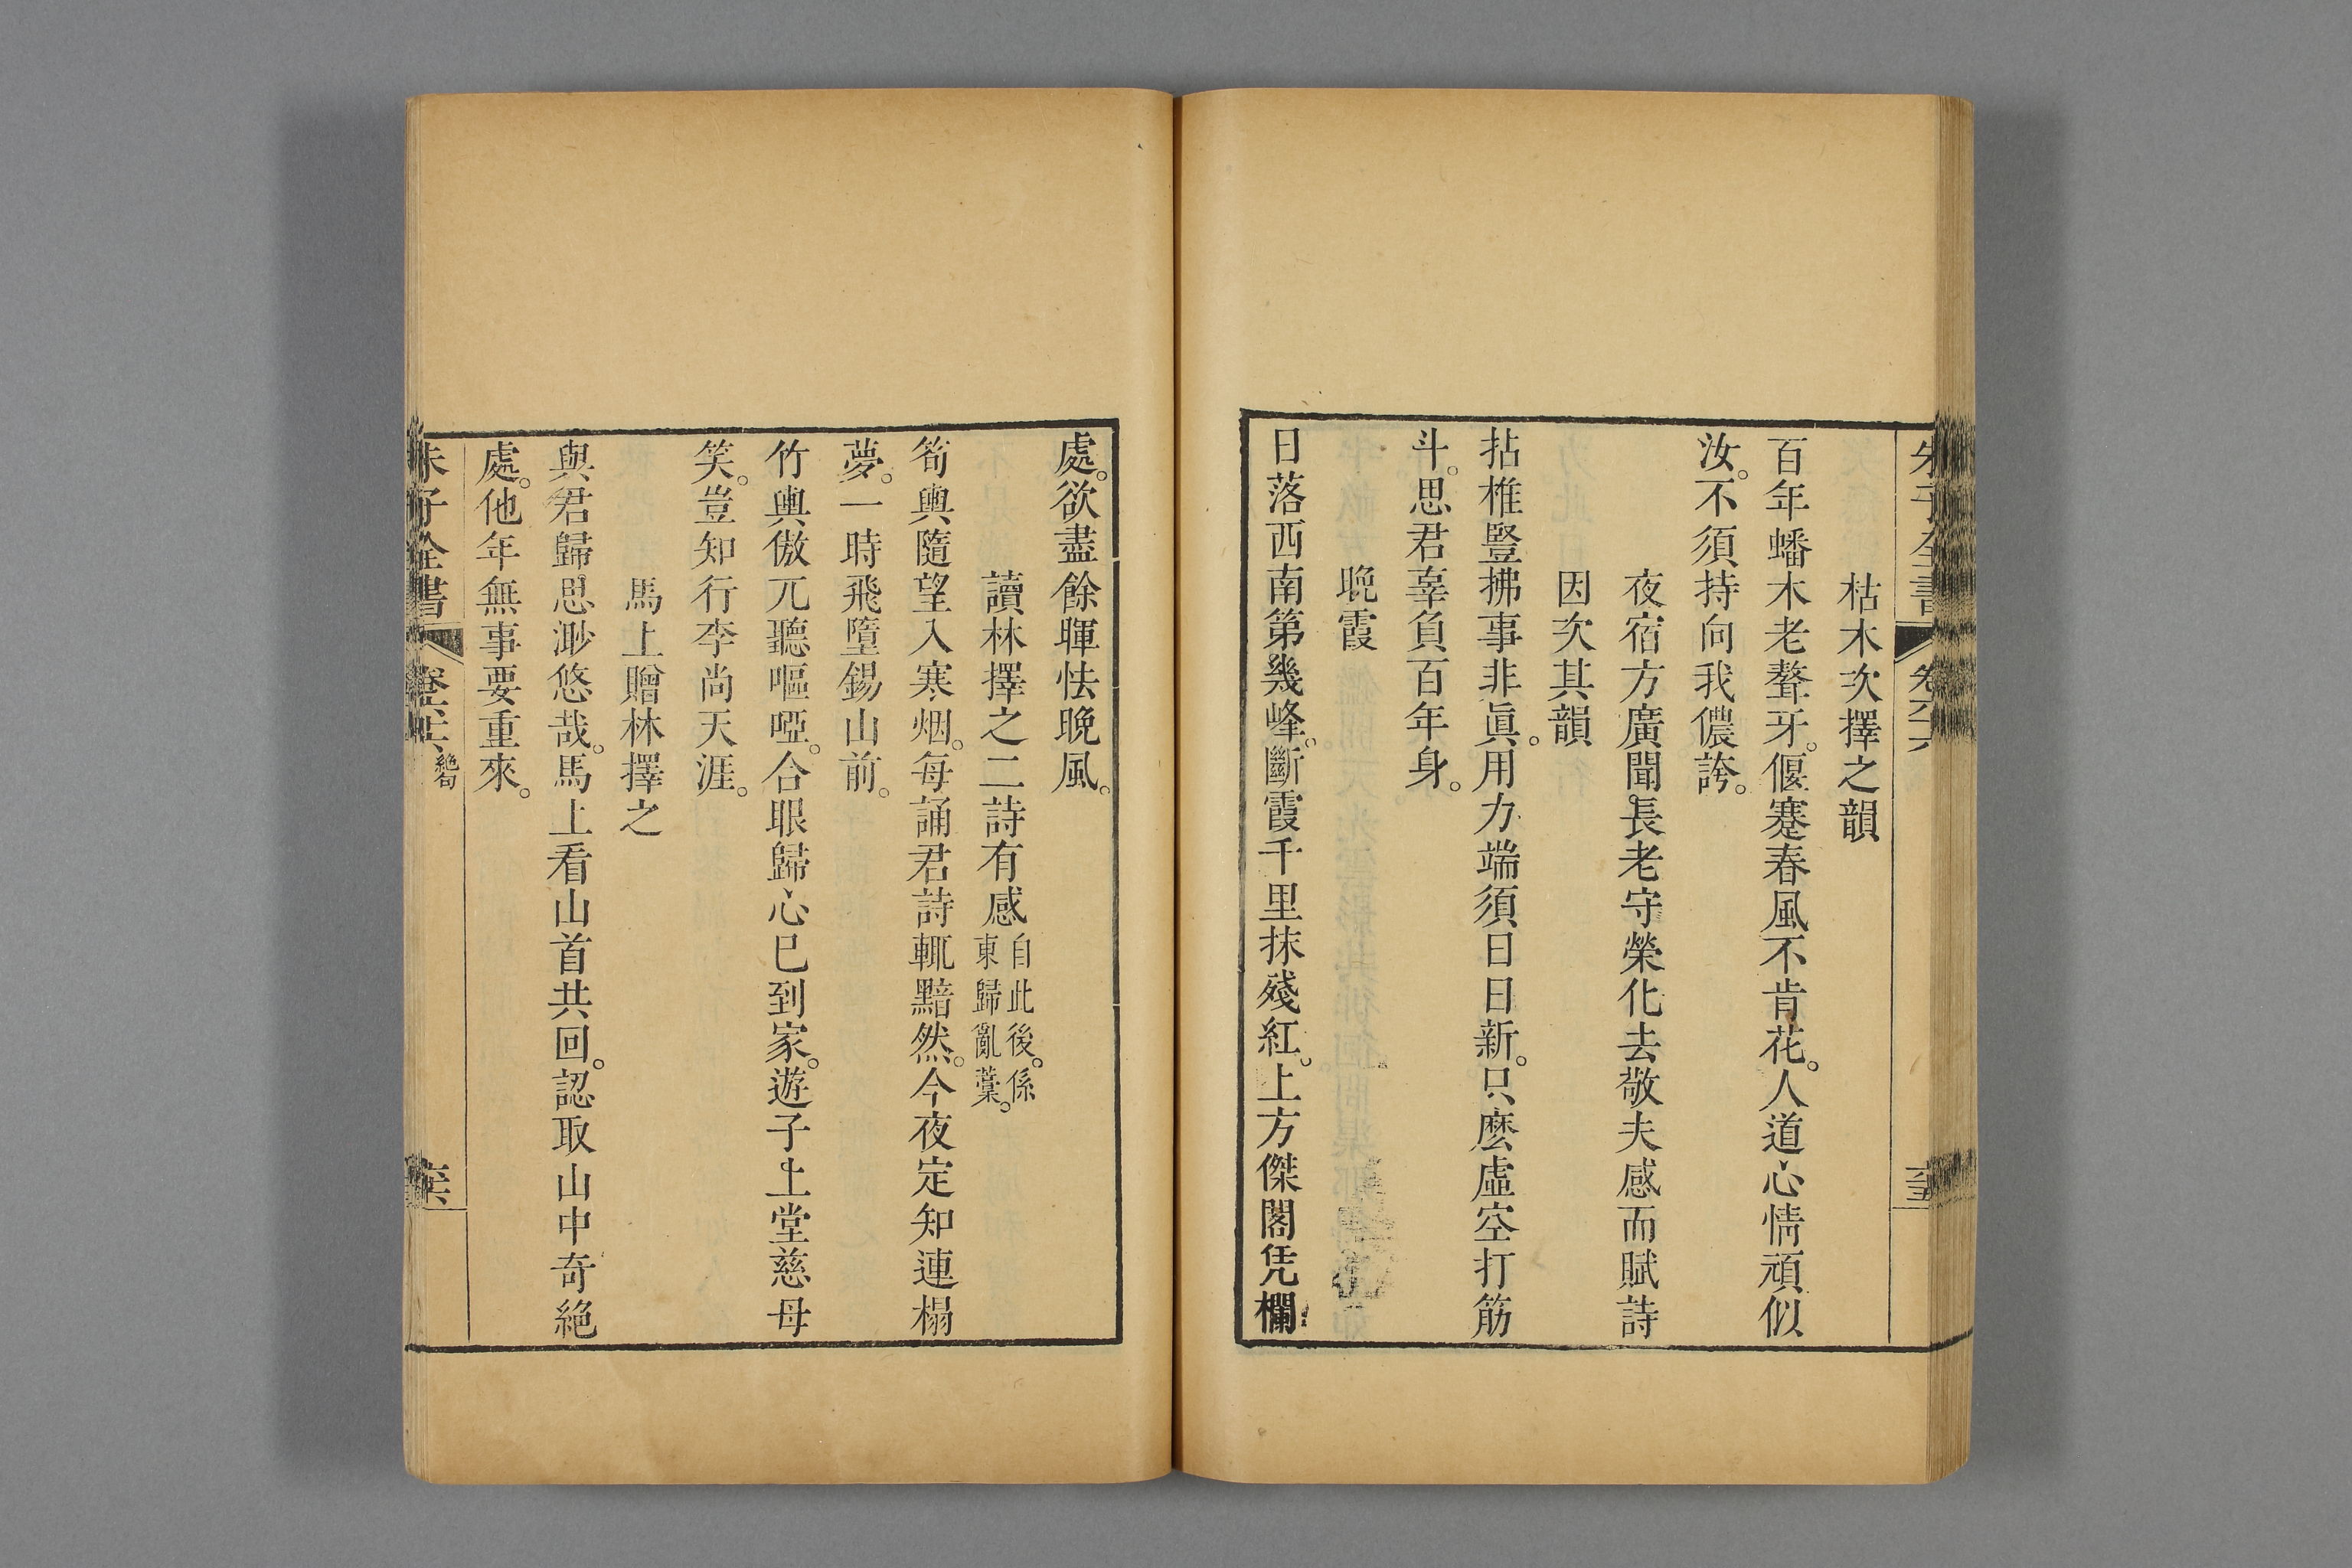 朱子全書 卷六十六
枯木次擇之韻
百年蟠木老聱牙。偃蹇春風不肯花。人道心情頑似
汝。不須持向我儂誇。
夜宿方廣聞長老守榮化去敬夫感而賦詩
因次其韻
拈椎豎拂事非眞。用力端須日日新。只麽虛空打筋
斗。思君辜負百年身。
晩霞
日落西南第幾峰。斷霞千里抹殘紅。上方傑閣凭欄
處。欲盡餘暉怯晩風。
讀林擇之二詩有感 自此後。係
東歸亂藳。
筍輿隨望入寒烟。每誦君詩輒黯然。今夜定知連榻
夢。一時飛墮錫山前。
竹輿傲兀聽嘔啞。合眼歸心已到家。遊子上堂慈母
笑。豈知行李尚天涯。
馬上贈林擇之
與君歸思渺悠哉。馬上看山首共回。認取山中奇絶
處。他年無事要重來。
朱子全書 卷六十六 絶句